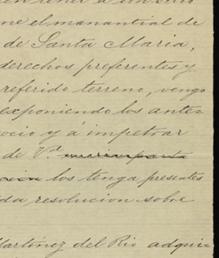 ne el manantial de
de Santa Maria,
derechos preferentes y
referido terreno, vengo
exponiendo los ante
ocio y á impetrar
de V.ª
los tenga presentes
da resolucion sobre
Martinez del Rio adqui